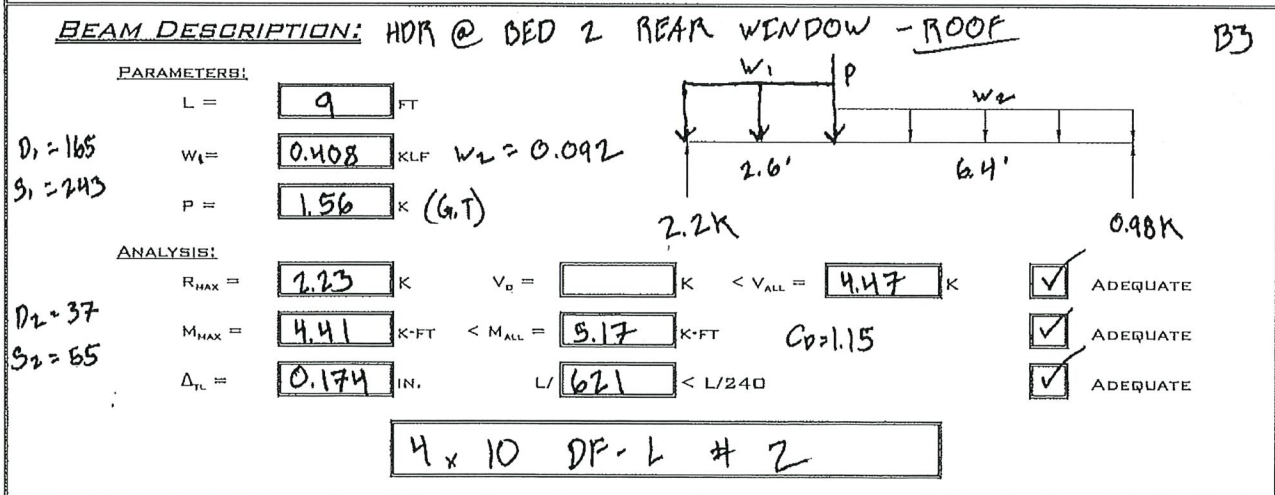 BEAM DESCRIPTION: HDR @ BED 2 REAR WINDOW - ROOF B3
PARAMETERS:
L = 9 FT
W1 P
W2
D1 = 165
W1= 0.408 KLF W2 = 0.092
2.6' 6.4'
S1 = 243
P = 1.56 K (G.T)
2.2K 0.98K
ANALYSIS:
RMAX = 2.23 K VD = K < VALL = 4.47 K ✓ ADEQUATE
D2 = 37
MMAX = 4.41 K-FT < MALL = 5.17 K-FT CD=1.15 ✓ ADEQUATE
S2 = 55
ΔTL = 0.174 IN. L/ 621 < L/240 ✓ ADEQUATE
4 x 10 DF-L # 2